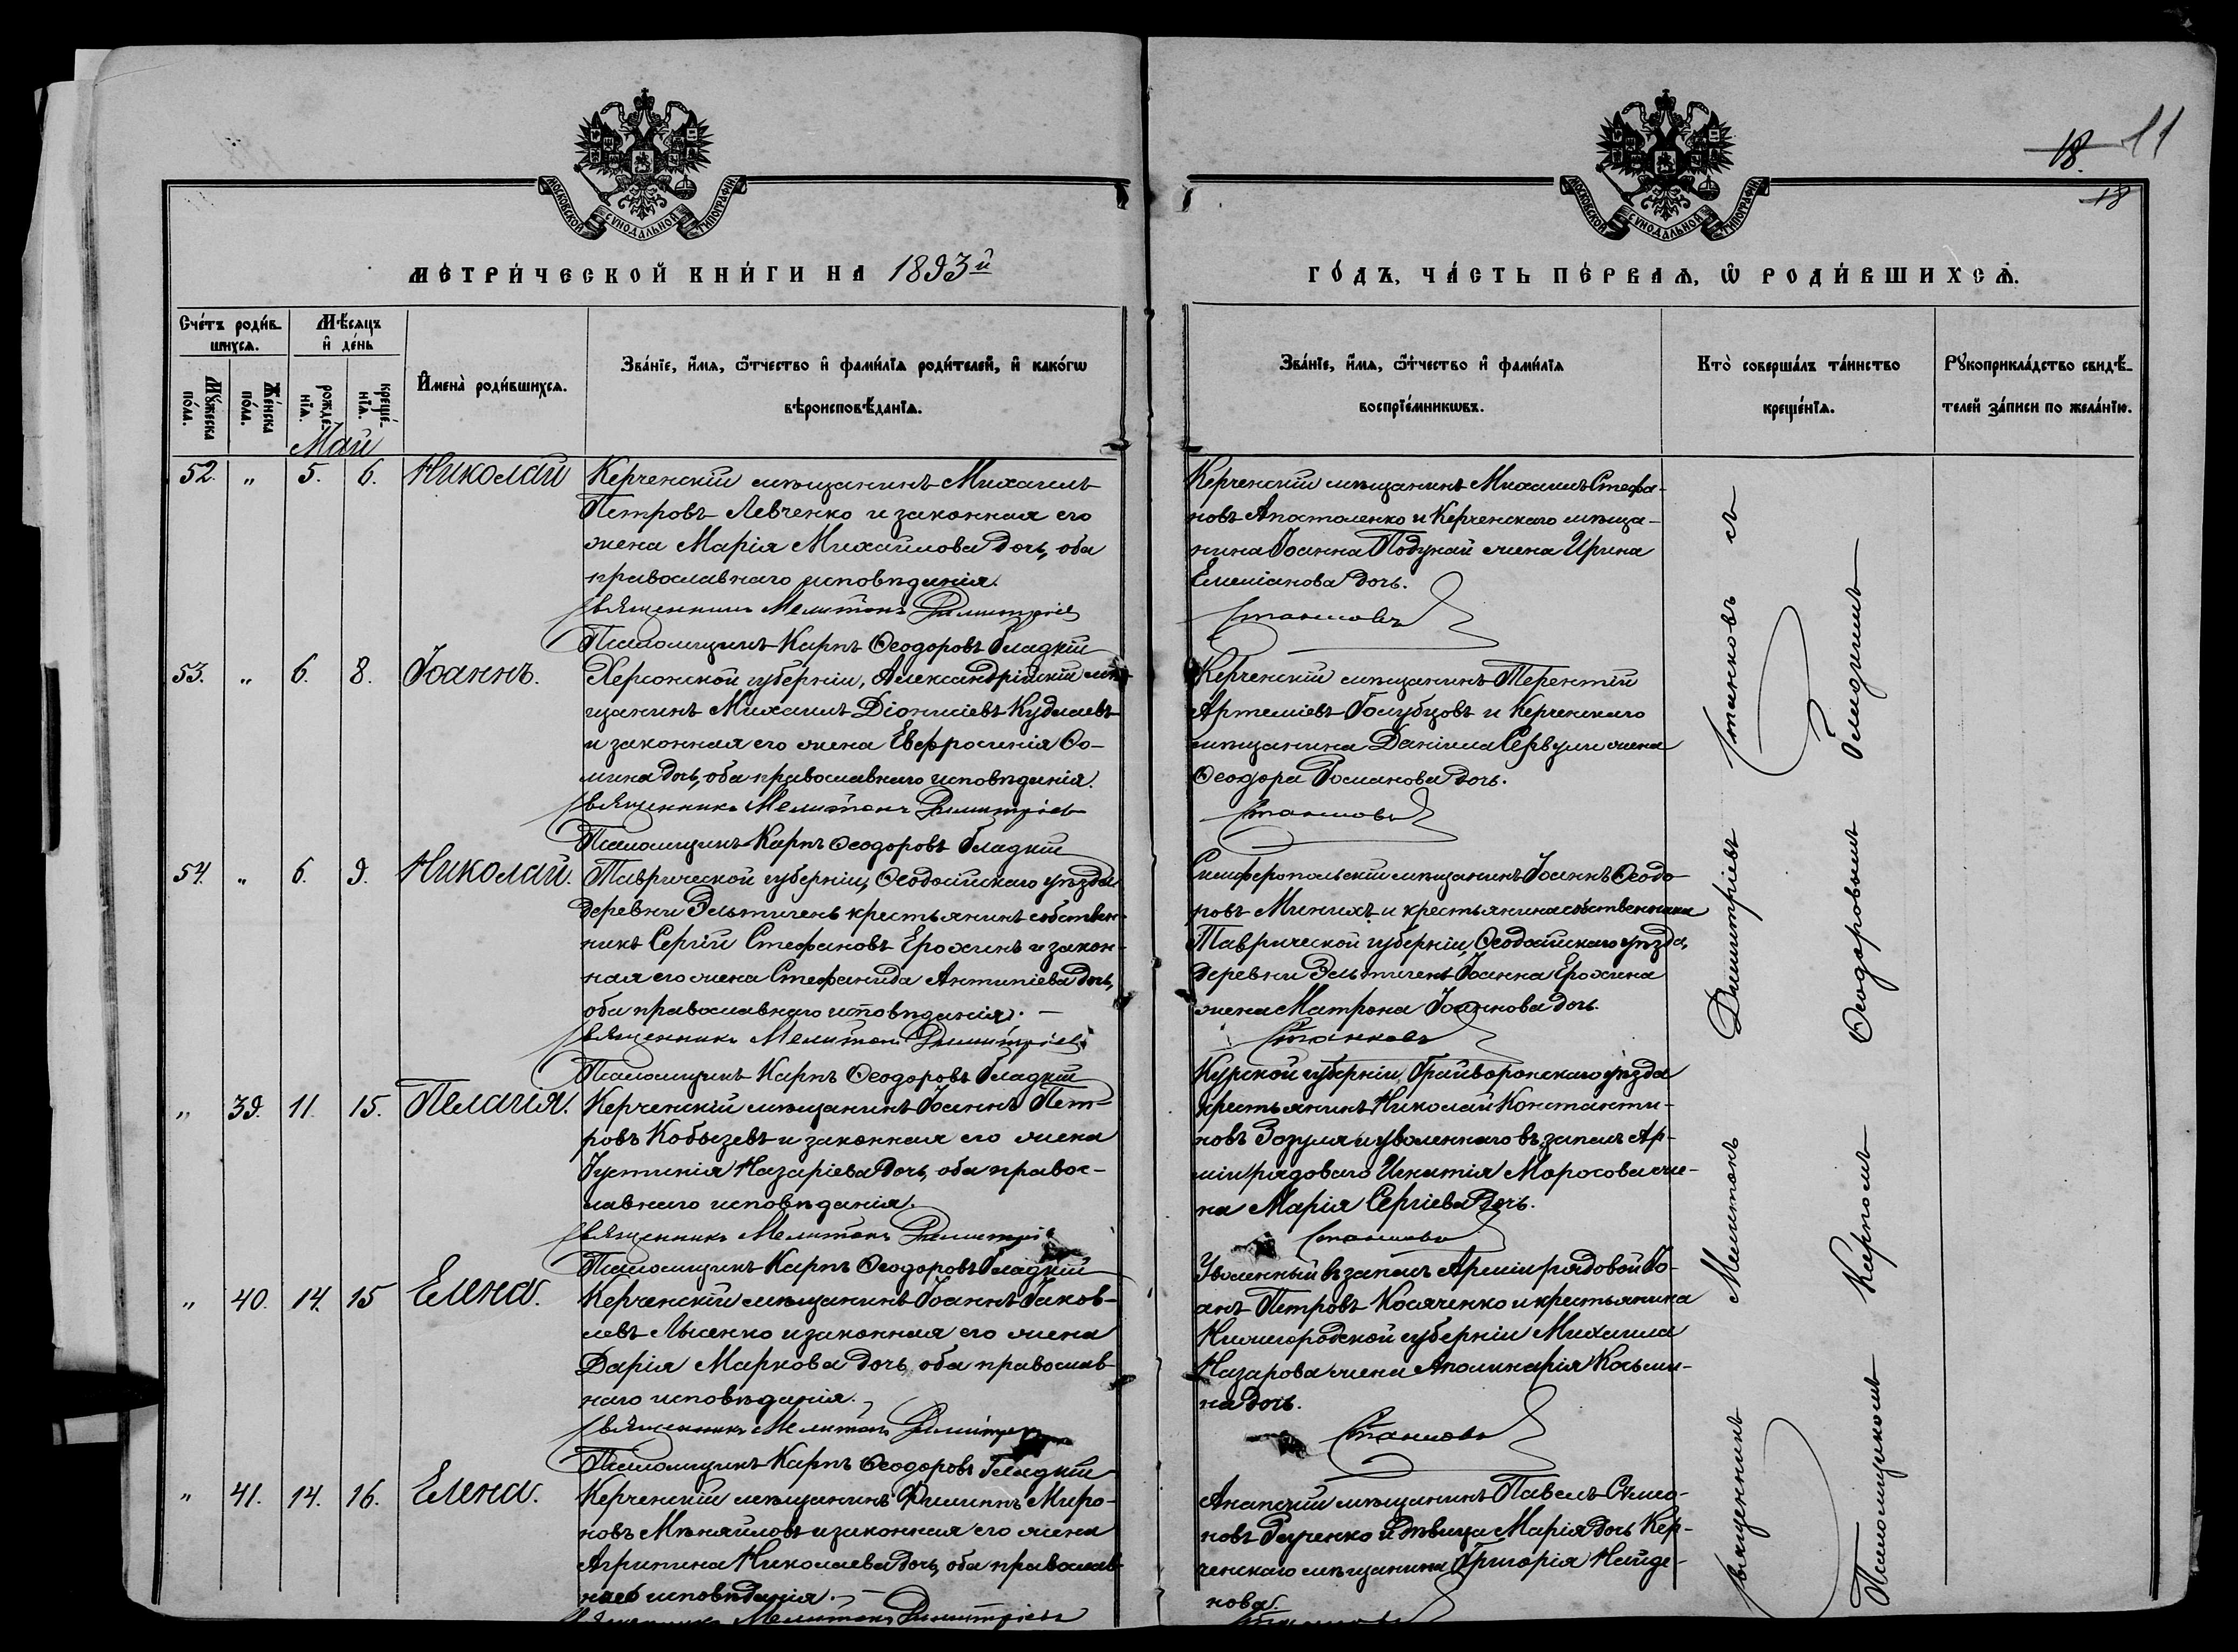 18. 11
18
МОСКОВСКОЙ СѴНОДАЛЬНОЙ ТИПОГРАФІИ
МОСКОВСКОЙ СѴНОДАЛЬНОЙ ТИПОГРАФІИ
МЕТРИЧЕСКОЙ КНИГИ НА 1893й
ГОДЪ, ЧАСТЬ ПЕРВАЯ, Ѡ РОДИВШИХСЯ.
Счетъ родив-
шихся.
Мужеска пола.
Женска пола.
Мѣсяцъ
и день
рожде-
нія.
креще-
нія.
Имена родившихся.
Званіе, имя, ѿтчество и фамилія родителей, и какогѡ
вѣроисповѣданія.
Званіе, имя, ѿтчество и фамилія
воспріемникѡвъ.
Кто совершалъ таинство
крещенія.
Рукоприкладство свидѣ-
телей записи по желанію.
Май
52. " 5. 6. Николай
Керченскій мѣщанинъ Михаилъ
Петровъ Левченко и законная его
жена Марія Михайлова дочь, оба
православнаго исповѣданія.
Священникъ Мелитонъ Димитріев
Псаломщикъ Карпъ Ѳеодоровъ Гладкій
Керченскій мѣщанинъ Михаилъ Стефа-
новъ Апостоленко и Керченскаго мѣща-
нина Іоанна Подунай жена Ирина
Емеліанова дочь.
Станковъ
53. " 6. 8. Іоаннъ.
Херсонской губерніи, Александрійскій мѣ-
щанинъ Михаилъ Діонисіевъ Кудлаевъ
и законная его жена Евфросинія Ѳо-
мина дочь, оба православнаго исповѣданія.
Священникъ Мелитонъ Димитріев
Псаломщикъ Карпъ Ѳеодоровъ Гладкій
Керченскій мѣщанинъ Терентій
Артеміевъ Голубцовъ и Керченскаго
мѣщанина Даніила Сервули жена
Ѳеодора Романова дочь.
Станковъ
54. " 6. 9. Николай.
Таврической губерніи, Ѳеодосійскаго уѣзда
деревни Эльтигень крестьянинъ собствен-
никъ Сергій Стефановъ Ерохинъ и закон-
ная его жена Стефанида Антипіева дочь,
оба православнаго исповѣданія. —
Священникъ Мелитонъ Димитріев
Псаломщикъ Карпъ Ѳеодоровъ Гладкій
Симферопольскій мѣщанинъ Іоаннъ Ѳеодо-
ровъ Минихъ и крестьянина собственника
Таврической губерніи, Ѳеодосійскаго уѣзда,
деревни Эльтигень Іоанна Ерохина
жена Матрона Іоаннова дочь.
Станковъ
" 39. 11. 15. Пелагія.
Керченскій мѣщанинъ Іоаннъ Пет-
ровъ Кобызевъ и законная его жена
Іустинія Назаріева дочь, оба правос-
лавнаго исповѣданія.
Священникъ Мелитонъ Димитрі
Псаломщикъ Карпъ Ѳеодоровъ Гладкій
Курской губерніи, Грайворонскаго уѣзда
крестьянинъ Николай Константи-
новъ Зозуля и уволеннаго въ запасъ Ар-
міи рядоваго Игнатія Моросова же-
на Марія Сергіева дочь.
Станковъ
" 40. 14. 15 Елена.
Керченскій мѣщанинъ Іоаннъ Іаков-
левъ Лысенко и законная его жена
Дарія Маркова дочь, оба православ-
наго исповѣданія.
Священникъ Мелитонъ Димитр
Псаломщикъ Карпъ Ѳеодоровъ Гладкій
Уволенный въ запасъ Арміи рядовой Іо-
анъ Петровъ Косяченко и крестьянина
Нижегородской губерніи Михаила
Назарова жена Аполинарія Косьми-
на дочь.
Станковъ
" 41. 14. 16. Елена.
Керченскій мѣщанинъ Филиппъ Миро-
новъ Мѣняйловъ и законная его жена
Агрипина Николаева дочь, оба православ-
наго исповѣданія. —
Священникъ Мелитонъ Димитріевъ
Анапскій мѣщанинъ Павелъ Симео-
новъ и дѣвица Марія дочь Кер-
ченскаго мѣщанина Григорія Найде-
нова.
Станковъ
Священникъ Мелитонъ Димитріевъ Станковъ съ
Псаломщикомъ Карпомъ Ѳеодоровымъ Гладкимъ